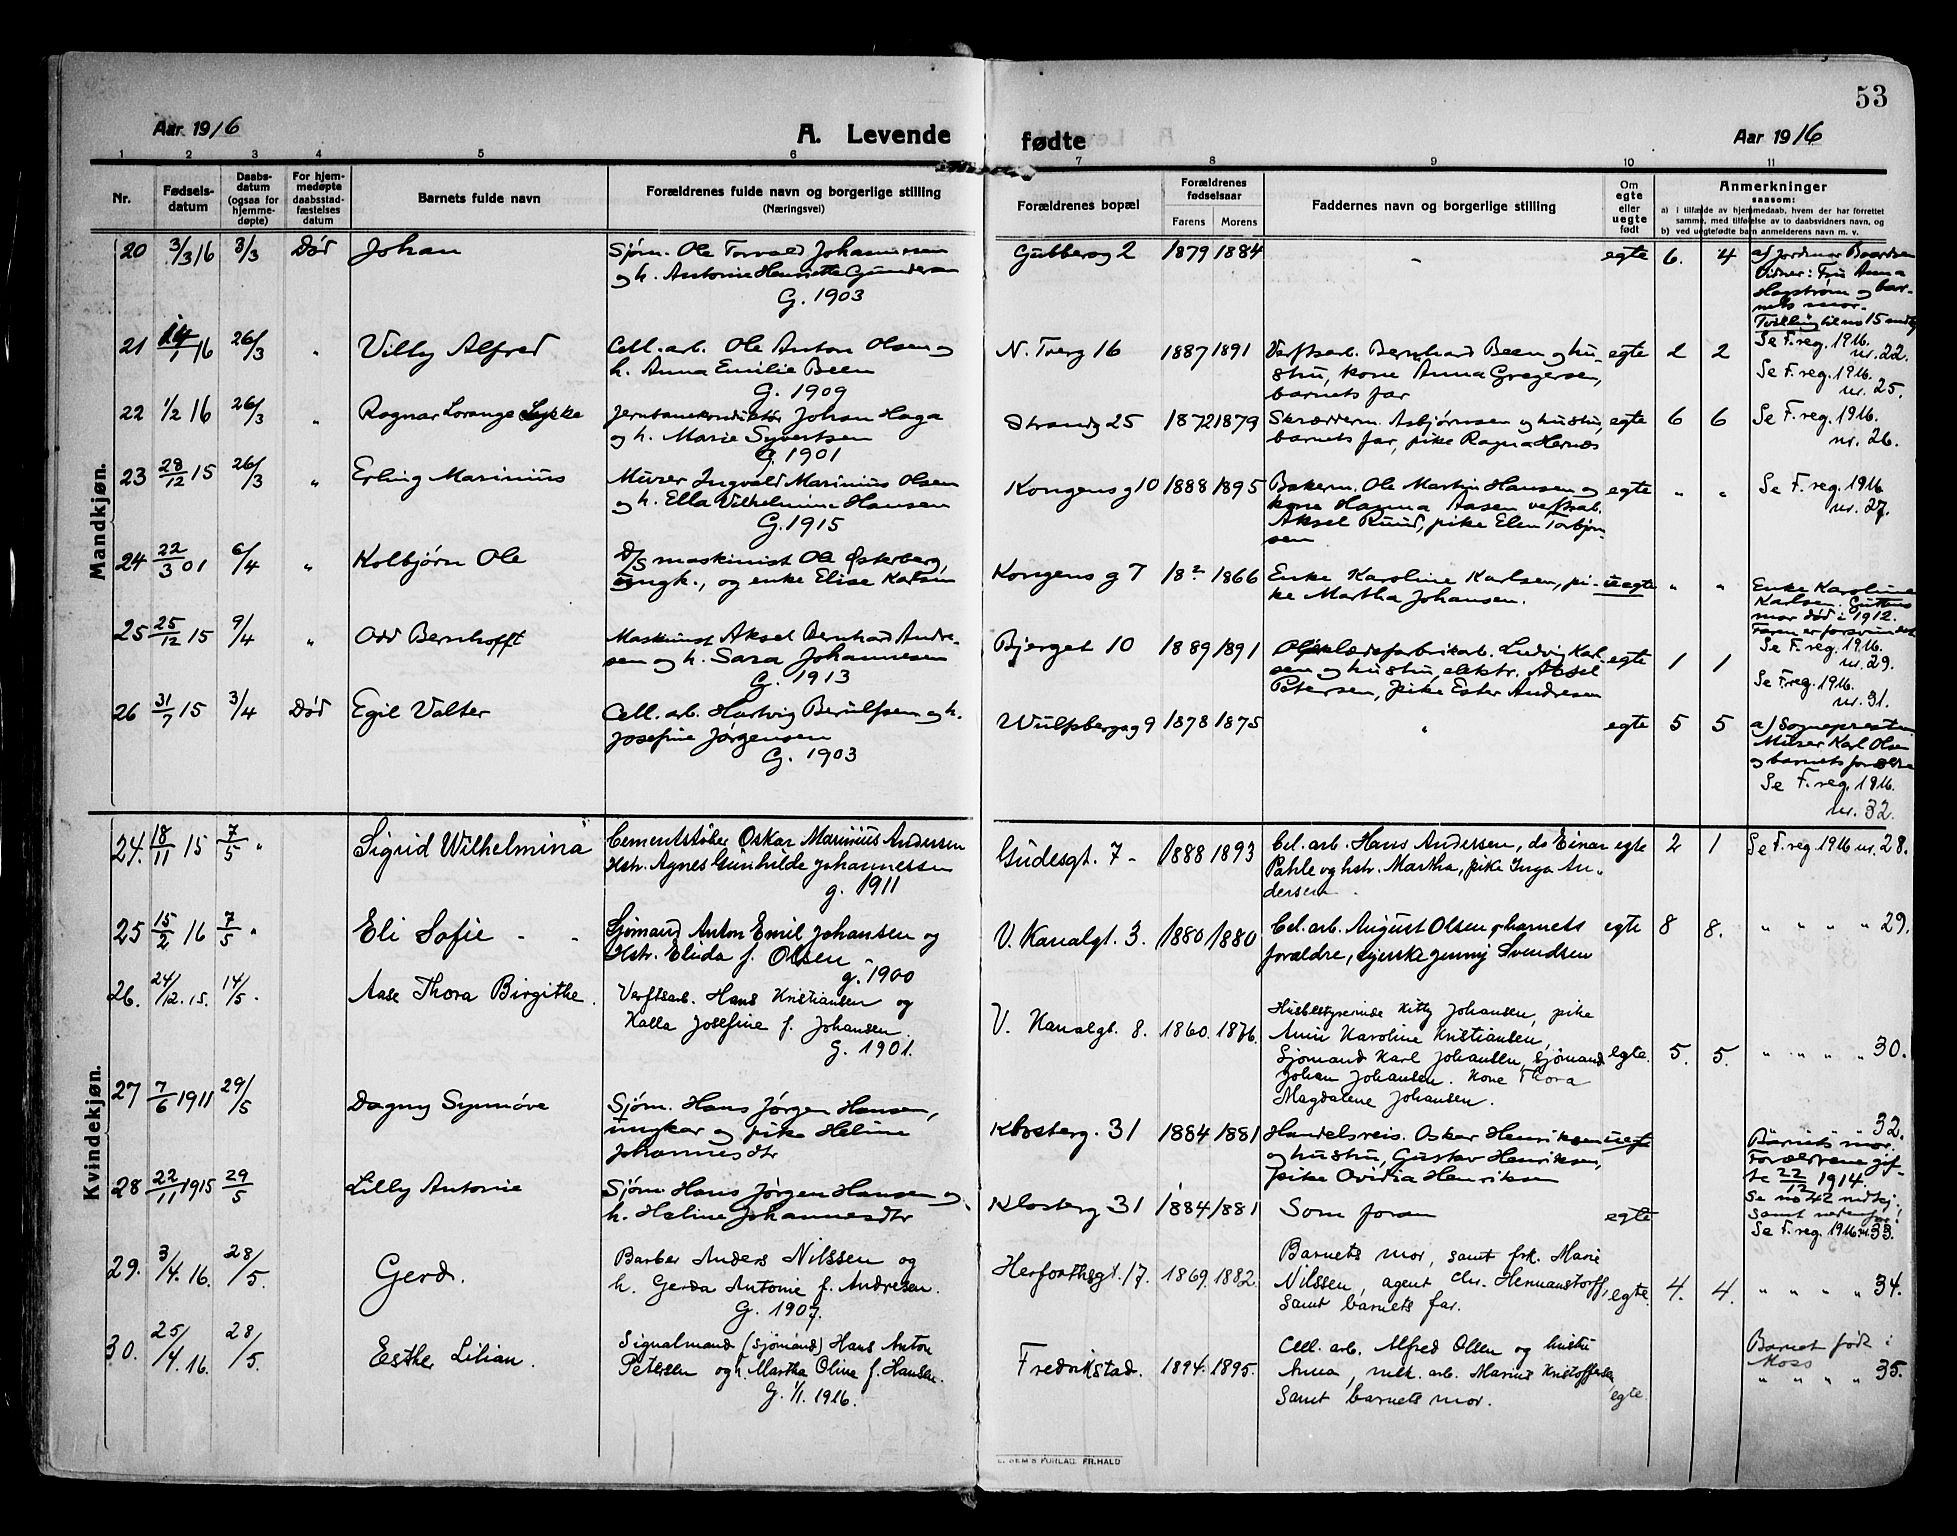 53
Aar 1916
A. Levende fødte
Aar 1916
1 2 3 4 5 6 7 8 9 10 11
Nr.
Fødsels-
datum
Daabs-
datum
(ogsaa for
hjemme-
døpte)
For hjem-
medøpte
daabsstad-
fæstelses
datum
Barnets fulde navn
Forældrenes fulde navn og borgerlige stilling
(Næringsvei)
Forældrenes bopæl
Forældrenes
fødselsaar
Farens Morens
Faddernes navn og borgerlige stilling
Om
egte
eller
uegte
født
Anmerkninger
saasom:
a) i tilfælde av hjemmedaab, hvem der har forrettet
samme, med tilføielse av to daabsvidners navn, og
b) ved uegtefødte barn anmelderens navn m. v.
Mandkjøn.
20 3/3 16 8/3 Død Johan
Sjøm. Ole Torvald Johannesen
og h. Antonie Henriette Gundersen
G. 1903
Gubberog 2 1879 1884 " egte 6. 4
a/ Jordmor Baardsen
Vidner: Fru Anna
Hagstrøm og bar-
nets mor.
Tvilling til no 15
Se F. reg. 1916
nr. 22.
21 14/1 16 26/3 " Villy Alfred
Cell. arb. Ole Anton Olsen og
h. Anna Emilie Been
G. 1909
N. Torvg 16 1887 1891
Verftsarb. Bernhard Been og hu-
stru, kone Anna Gregersen,
barnets far
egte 2 2
Se F. reg. 1916.
nr. 25.
22 1/2 16 26/3 " Ragnar Lorange Lykke
Jernbanekonduktør Johan Haga
og h. Marie Syvertsen
G. 1901
Strandg 25 1872 1879
Skræderm. Asbjørnsen og hustru,
barnets far, pike Ragna Hernæs
egte 6 6
Se F. reg. 1916
nr. 26.
23 28/12 15 26/3 " Erling Marinius
Murer Ingvald Marinius Olsen
og h. Ella Vilhelmine Hansen
G. 1915
Kongens g 10 1888 1895
Bakerm. Ole Martin Hansen og
kone Hanna Aasen verftsarb.
Aksel Ruud, pike Elen Torbjørn-
sen
egte " "
Se F. reg. 1916
nr. 27.
24 22/3 01 6/4 " Kolbjørn Ole
D/S maskinist Ole Østerberg,
ungk., og enke Elise Karlsen
Kongens g 7 18? 1866
Enke Karoline Karlsen, pi-
ke Martha Johansen.
uegte " "
Enke Karoline
Karlsen. Guttens
mor død i 1912.
Faren er forsvundet
Se F. reg. 1916.
nr. 29.
25 25/12 15 9/4 " Odd Bernhofft
Maskinist Aksel Bernhard Andre-
sen og h. Sara Johannesen
G. 1913
Bjerget 10 1889 1891
Oljeklædefabrikarb. Ludvig Karl-
sen og hustru, elektr. Aksel
Petersen, pike Ester Andresen
egte 1 1
Se F. reg. 1916.
nr. 31.
26 31/7 15 3/4 Død Egil Valter
Cell. arb. Hartvig Berulfsen og h.
Josefine Jørgensen
G. 1903
Wulfsbergsg 9 1878 1875 " egte 5 5
a/ Sognepresten
Murer Karl Olsen
og barnets forældre
Se F. reg. 1916.
nr. 32.
Kvindekjøn.
24. 18/11 15 7/5 " Sigrid Wilhelmina
Cementstøber Oskar Marinius Andersen
Hstr. Agnes Gunhilde Johannessen
g. 1911
Gudesgt. 7 - 1888 1893
Cel. arb. Hans Andersen, do Einar
Pahle og hstr. Martha, pike Inga An-
dersen
egte 2 1
Se F. reg 1916 nr. 28.
25 15/2 16 7/5 " Eli Sofie - -
Sjømand Anton Emil Johansen og
Hstr. Elida f. Olsen
g. 1900
V. Kanalgt. 3. 1880 1880
Cel. arb. August Olsen og barnets
forældre, syerske Jenny Svendsen
egte 8 8.
" " " " 29.
26. 24/12. 15. 14/5. Aase Thora Birgithe.
Verftsarb. Hans Kristiansen og
Kalla Josefine f. Johansen.
G. 1901.
V. Kanalgt. 8. 1860. 1876.
Husbestyrerinde Kitty Johansen, pike
Anni Karoline Kristiansen,
Sjømand Karl Johansen, sjømand
Johan Johansen. Kone Thora
Magdalene Johansen.
egte. 5. 5.
" " " " 30.
27 7/6 1911 29/5 Dagny Synnøve
Sjøm. Hans Jørgen Hansen,
ungkar og pike Heline
Johannesdtr
Klosterg. 31 1884 1881
Handelsreis. Oskar Henriksen
og hustru, Gustav Henriksen,
pike Ovidia Henriksen
uegte
32.
Barnets mor.
Forældrene gif-
te 22/12 1914.
28 22/11 1915 29/5 Lilly Antonie
Sjøm. Hans Jørgen Hansen og
h. Heline Johannesdtr
Klosterg 31 1884 1881 Som foran egte
Se F. reg. 1916 nr. 33.
29. 3/4. 16. 28/5. Gerd.
Barber Anders Nilssen og
h. Gerda Antonie f. Andresen.
G. 1907.
Herfoothsgt. 17. 1869. 1882.
Barnets mor, samt frk. Marie
Nilssen, agent Chr. Hermanstorff,
samt barnets far.
egte. 4. 4.
" " " " 34.
30. 25/4. 16. 28/5. Esther Lilian.
Signalmand (sjømand) Hans Anton
Petersen og h. Martha Oline f. Hansen.
G. 1/1. 1916.
Fredrikstad. 1894. 1895.
Cell. arb. Alfred Olsen og hustru
Anna, mek. arb. Marius Kristoffersen,
samt barnets mor.
egte.
Barnet født i
Moss
" " " " 35.
E. SEM'S FORLAG. FR.HALD